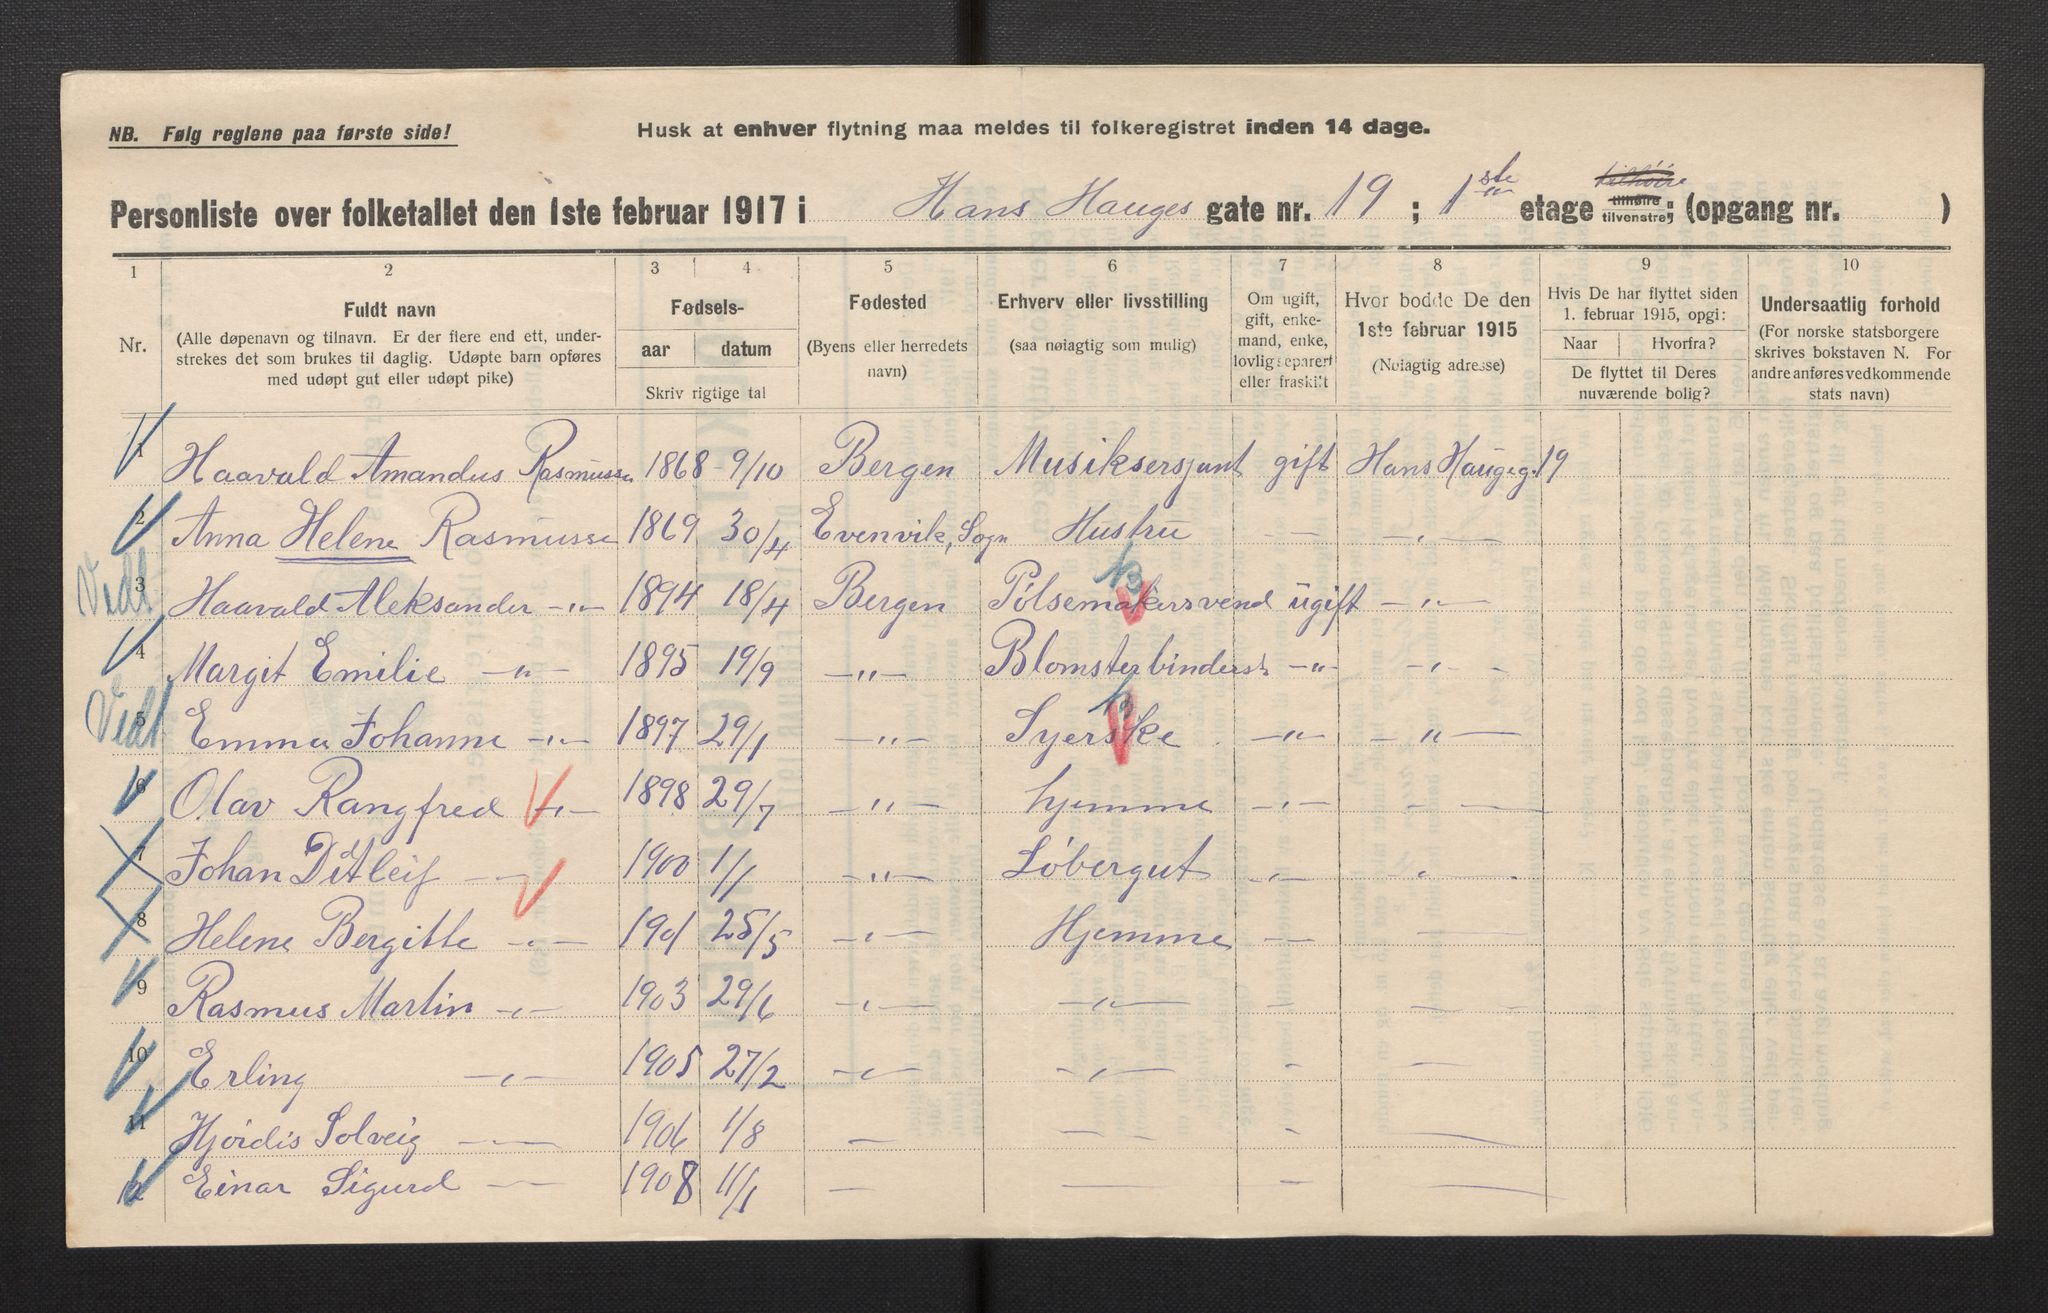 NB. Følg reglene paa første side!
Husk at enhver flytning maa meldes til folkeregistret inden 14 dage.
Personliste over folketallet den 1ste februar 1917 i Hans Hauges gate nr. 19 ; 1ste etage tilhøire tilvenstre; (opgang nr. )
1 2 3 4 5 6 7 8 9 10
Nr.
Fuldt navn
(Alle døpenavn og tilnavn. Er der flere end ett, under-
strekes det som brukes til daglig. Udøpte barn opføres
med udøpt gut eller udøpt pike)
Fødsels-
aar datum
Skriv rigtige tal
Fødested
(Byens eller herredets
navn)
Erhverv eller livsstilling
(saa nøiagtig som mulig)
Om ugift,
gift, enke-
mand, enke,
lovlig separert
eller fraskilt
Hvor bodde De den
1ste februar 1915
(Nøiagtig adresse)
Hvis De har flyttet siden
1. februar 1915, opgi:
Naar Hvorfra?
De flyttet til Deres
nuværende bolig?
Undersaatlig forhold
(For norske statsborgere
skrives bokstaven N. For
andre anføres vedkommende
stats navn)
1 Haavald Amandus Rasmussen 1868 9/10 Bergen Musiksersjant gift Hans Haugeg. 19
2 Anna Helene Rasmussen 1869 30/4 Evenvik, Sogn Hustru — —
Vidt 3 Haavald Aleksander -"- 1894 18/4 Bergen Pølsemakersvend ugift -"-
4 Margit Emilie -"- 1895 19/9 -"- Blomsterbinderske -"- -"-
Vidt 5 Emma Johanne -"- 1897 29/1 -"- Syerske -"- -"-
6 Olav Rangfred -"- 1898 29/7 -"- hjemme -"- -"-
7 Johan Ditleif — 1900 1/1 -"- Løbergut -"- -"-
8 Helene Bergitte -"- 1901 25/5 -"- Hjemme — —
9 Rasmus Martin -"- 1903 29/6 -"- -"- — —
10 Erling -"- 1905 27/2 -"- -"- — —
11 Hjørdis Solveig — 1906 1/8 — — — —
12 Einar Sigurd — 1908 11/1 — — — —